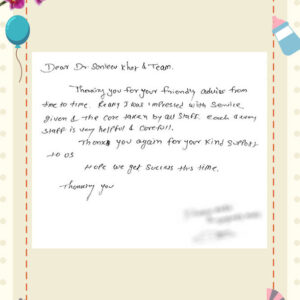 Dear Dr Sanjeev Khot & Team.
Thanking you for your friendly advise from
time to time. Realy I was impressed with Service
given & the care taken by all staff. each & every
staff is very helpful & carefull.
Thanks you again for your kind support
to us
Hope we get success this time.
Thanking you